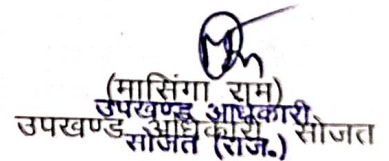 (मासिंगा राम)
उपखण्ड अधिकारी
उपखण्ड अधिकारी सोजत
सोजत (राज.)